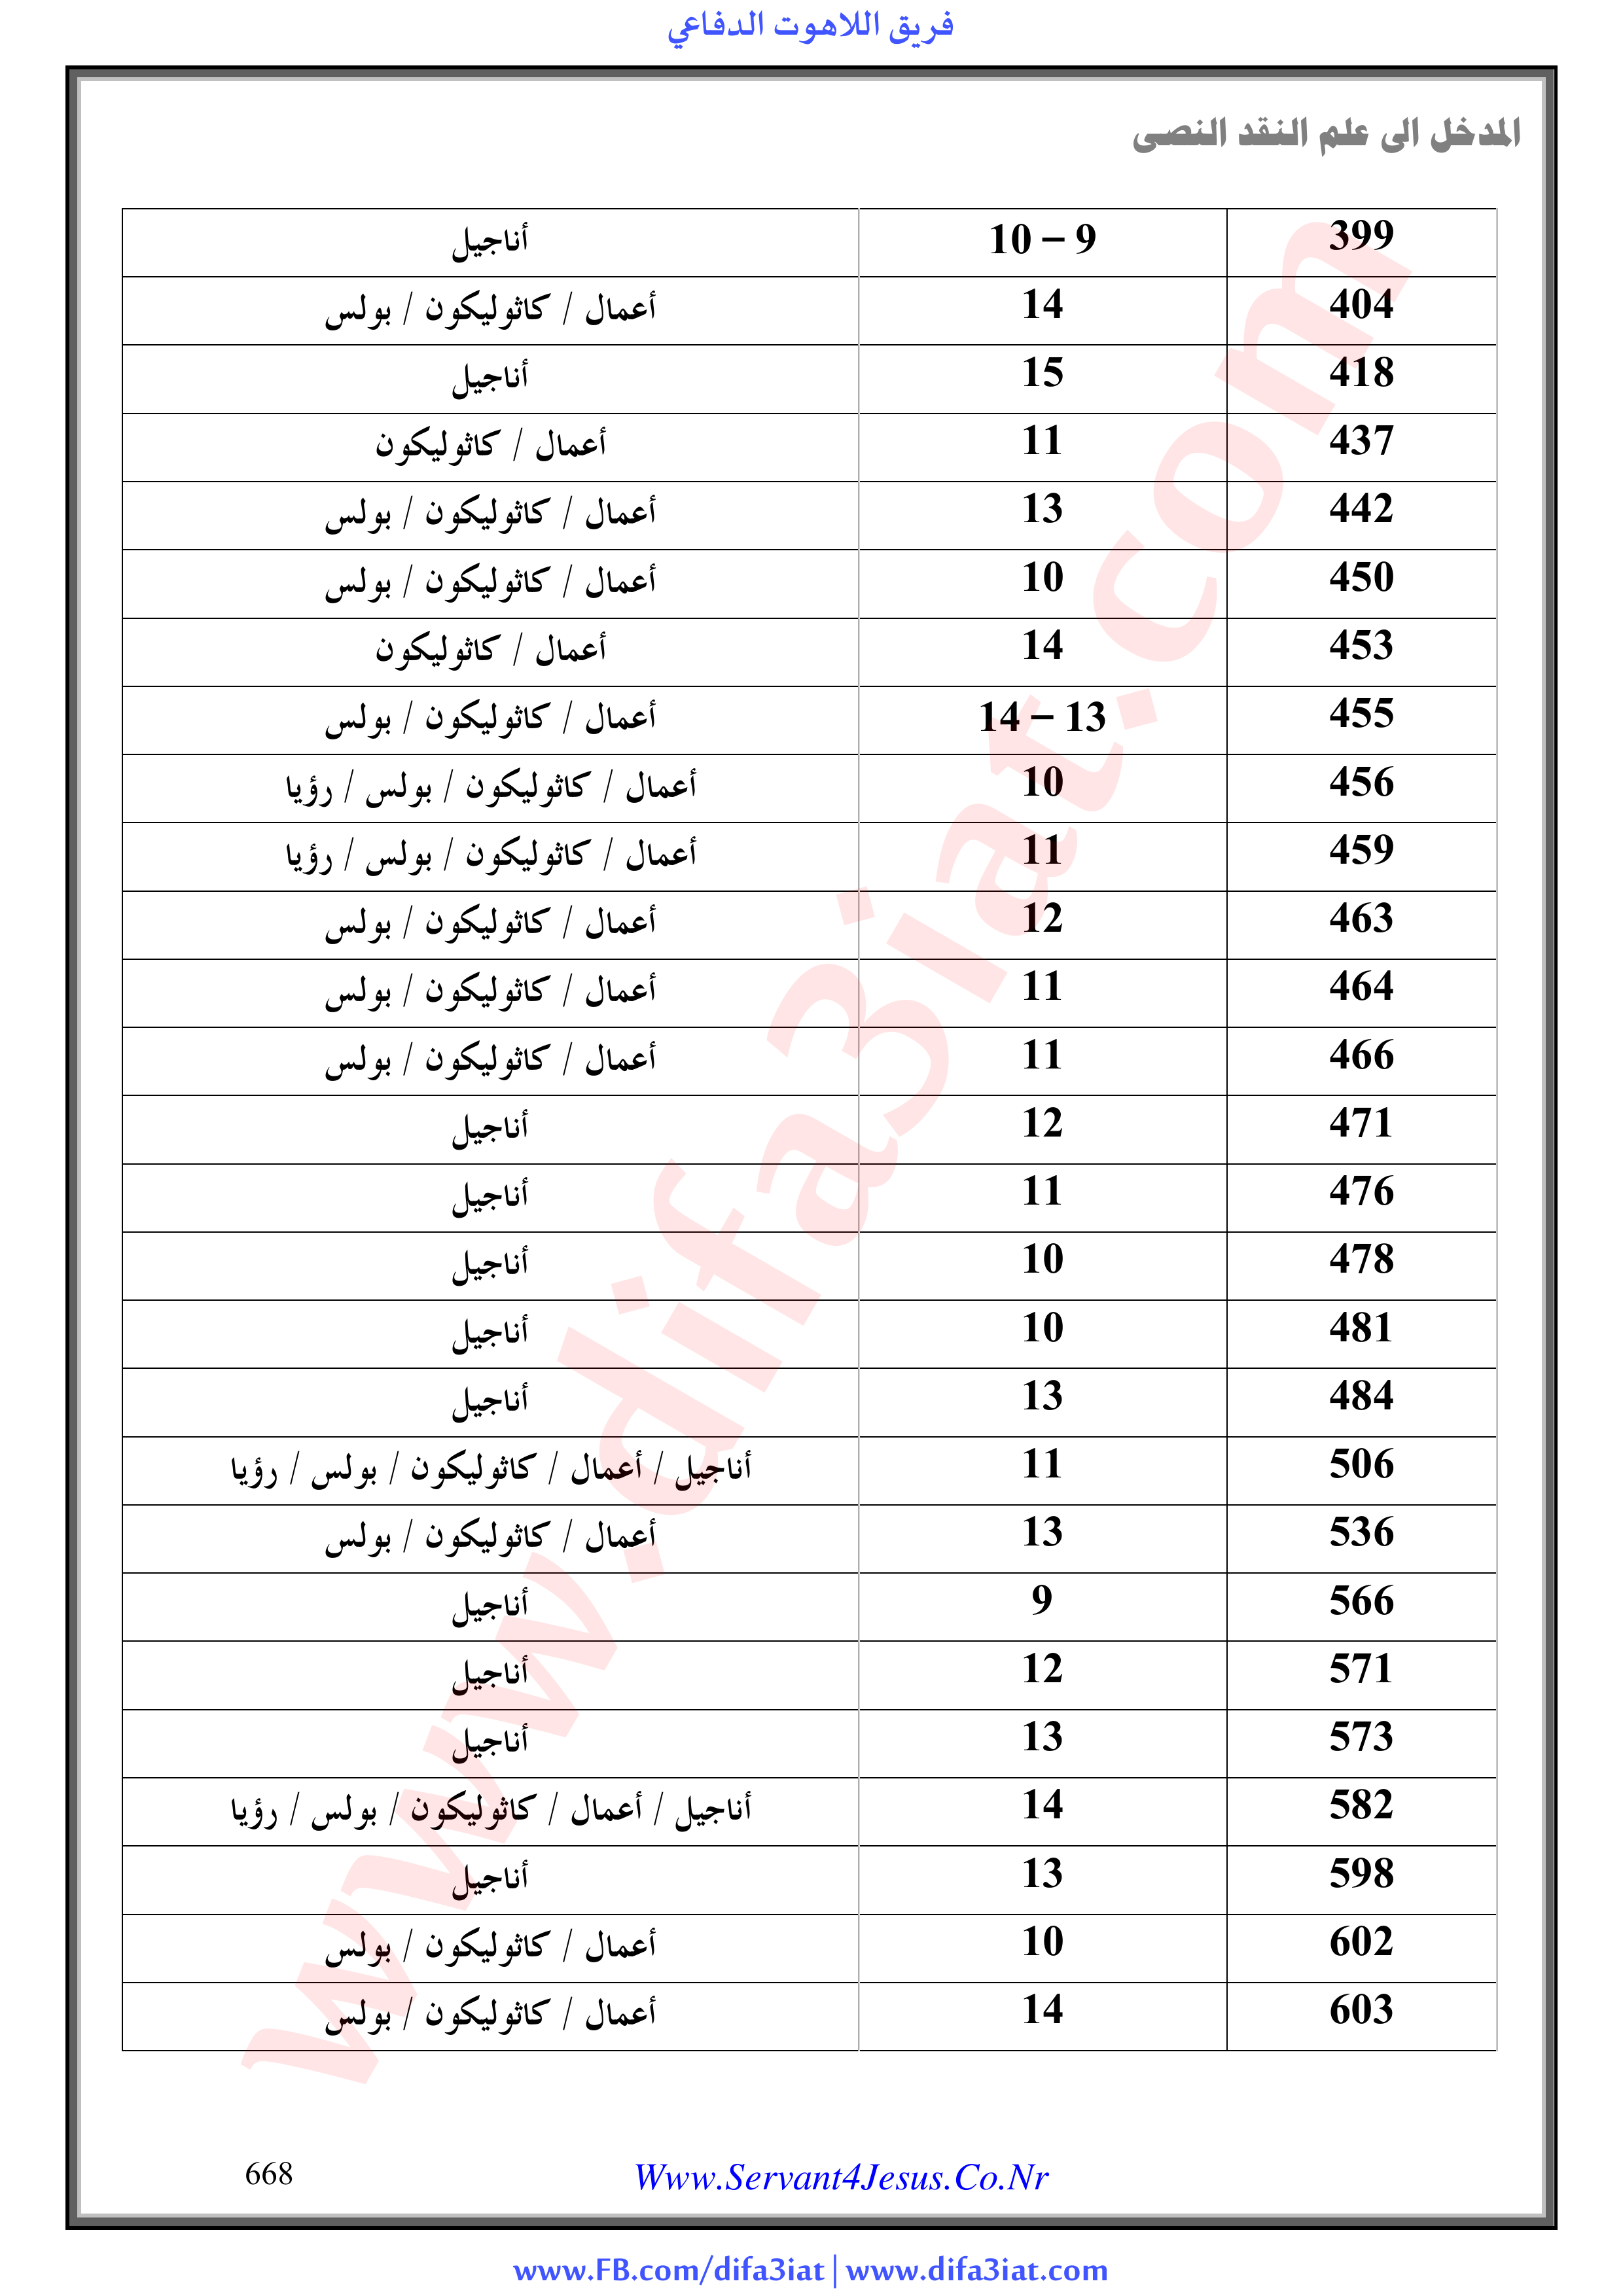 فريق اللاهوت الدفاعي
المدخل الى علم النقد النصى
399 9 – 10 أناجيل
404 14 أعمال / كاثوليكون / بولس
418 15 أناجيل
437 11 أعمال / كاثوليكون
442 13 أعمال / كاثوليكون / بولس
450 10 أعمال / كاثوليكون / بولس
453 14 أعمال / كاثوليكون
455 13 – 14 أعمال / كاثوليكون / بولس
456 10 أعمال / كاثوليكون / بولس / رؤيا
459 11 أعمال / كاثوليكون / بولس / رؤيا
463 12 أعمال / كاثوليكون / بولس
464 11 أعمال / كاثوليكون / بولس
466 11 أعمال / كاثوليكون / بولس
471 12 أناجيل
476 11 أناجيل
478 10 أناجيل
481 10 أناجيل
484 13 أناجيل
506 11 أناجيل / أعمال / كاثوليكون / بولس / رؤيا
536 13 أعمال / كاثوليكون / بولس
566 9 أناجيل
571 12 أناجيل
573 13 أناجيل
582 14 أناجيل / أعمال / كاثوليكون / بولس / رؤيا
598 13 أناجيل
602 10 أعمال / كاثوليكون / بولس
603 14 أعمال / كاثوليكون / بولس
www.difa3iat.com
668 Www.Servant4Jesus.Co.Nr
www.FB.com/difa3iat | www.difa3iat.com